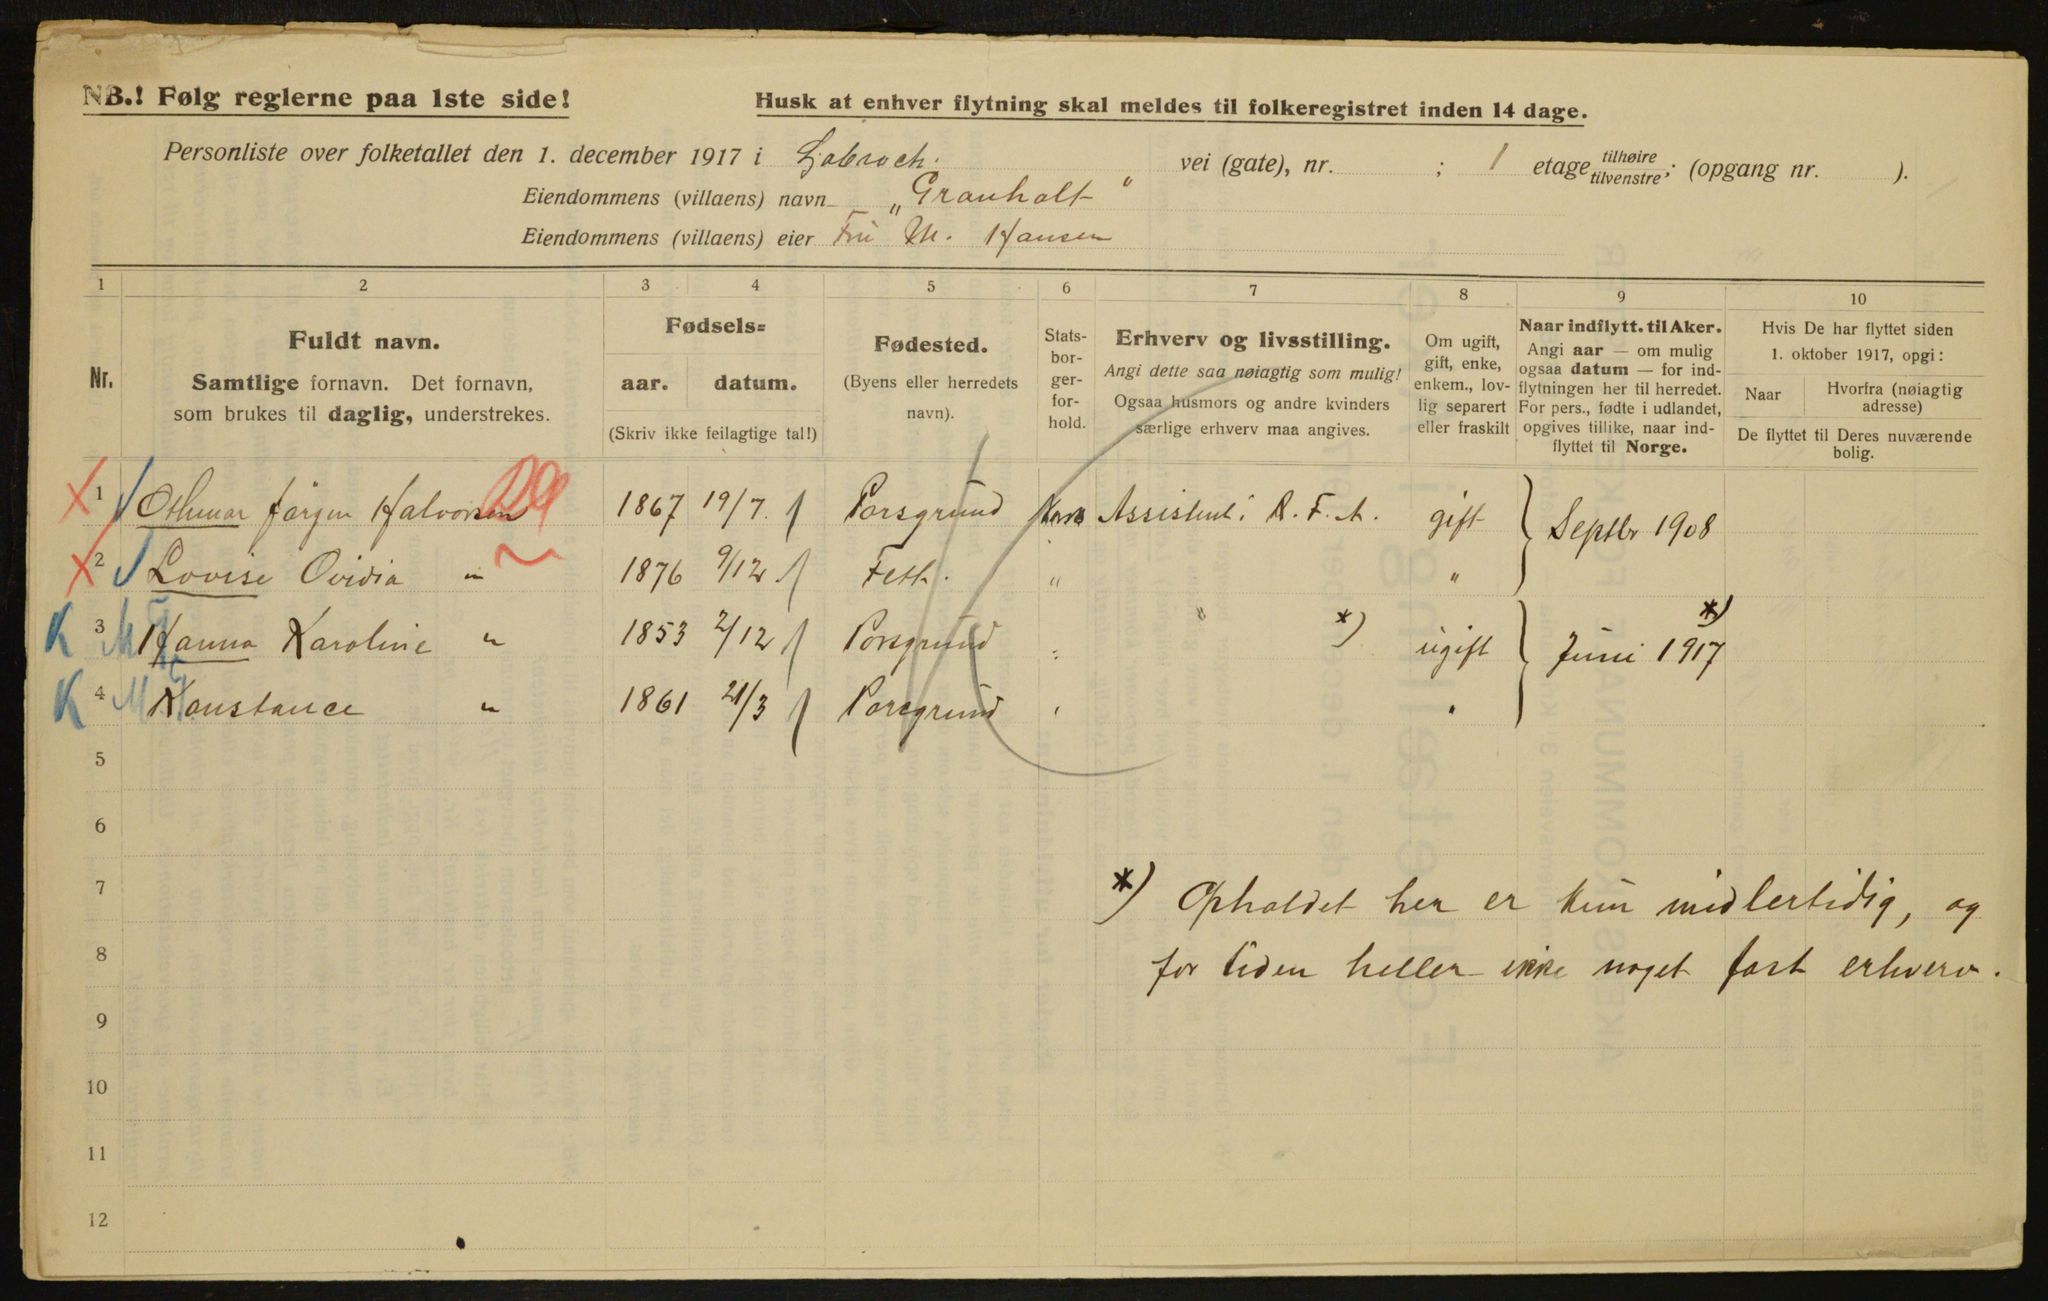 NB.! Følg reglerne paa 1ste side!
Husk at enhver flytning skal meldes til folkeregistret inden 14 dage.
Personliste over folketallet den 1. december 1917 i Ljabroch. vei (gate), nr. ; 1 etage tilhøire tilvenstre; (opgang nr. ).
Eiendommens (villaens) navn „Granholt"
Eiendommens (villaens) eier Fru M. Hansen
1 2 3 4 5 6 7 8 9 10
Nr.
Fuldt navn.
Samtlige fornavn. Det fornavn,
som brukes til daglig, understrekes.
Fødsels=
aar. datum.
(Skriv ikke feilagtige tal!)
Fødested.
(Byens eller herredets
navn).
Stats-
bor-
ger-
for-
hold.
Erhverv og livsstilling.
Angi dette saa nøiagtig som mulig!
Ogsaa husmors og andre kvinders
særlige erhverv maa angives.
Om ugift,
gift, enke,
enkem., lov-
lig separert
eller fraskilt
Naar indflytt. til Aker.
Angi aar — om mulig
ogsaa datum — for ind-
flytningen her til herredet.
For pers., fødte i utlandet,
opgives tillike, naar ind-
flyttet til Norge.
Hvis De har flyttet siden
1. oktober 1917, opgi:
Naar
Hvorfra (nøiagtig
adresse)
De flyttet til Deres nuværende
bolig.
X 1 Othmar Jörgen Halvorsen 1867 19/7 Porsgrund Norsk Assistent i R. F. A. gift Septbr 1908
X 2 Lovise Ovidia " 1876 9/12 Feth. " "
K 3 Hanna Karoline " 1853 2/12 Porsgrund " " *) ugift Juni 1917 *)
K 4 Konstance " 1861 21/3 Porsgrund " "
5
6
7
8
9
10
11
12
*) Opholdet her er kun midlertidig, og
for tiden heller ikke noget fast erhverv.